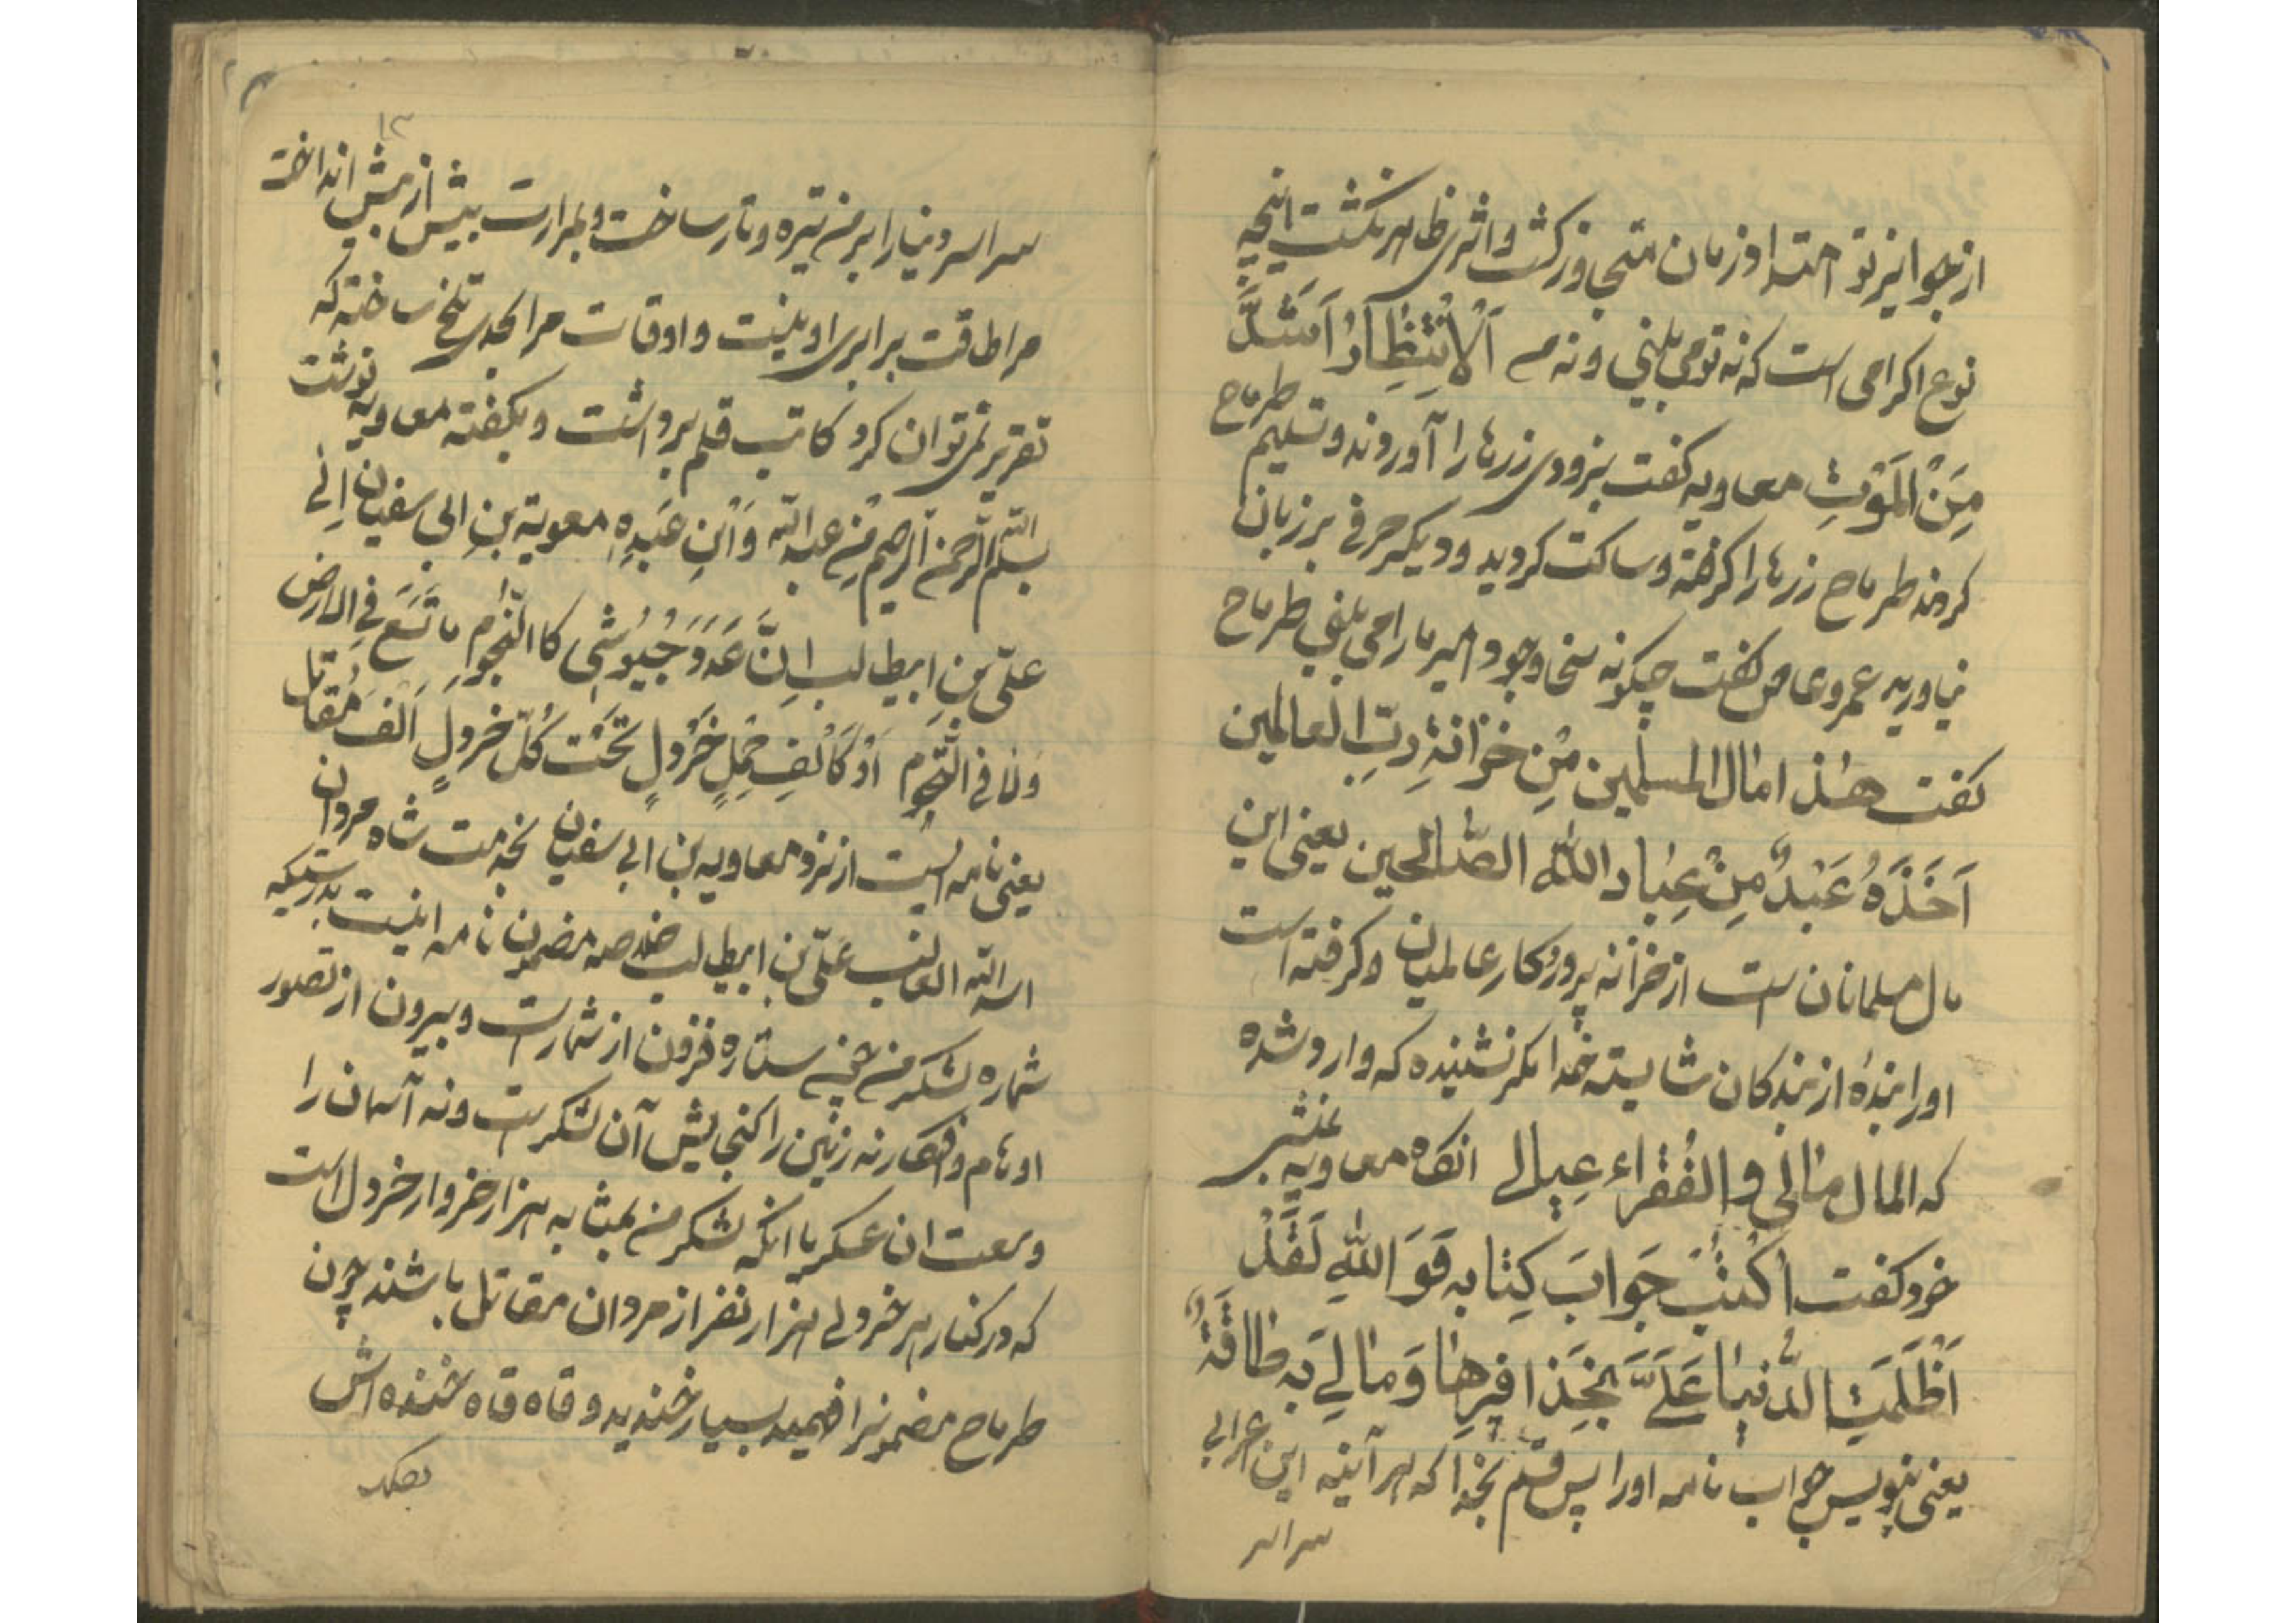 از جوایز تو امتداد زمان متجاوز گشت و اثری ظاهر نگشت اینچه
نوع اکرامی است که نه تو می بینی و نه من اَلْاِنْتِظَارُ اَشَدُّ
مِنَ الْمَوْتِ معاویه گفت بزودی زرها را آوردند و تسلیم طرماح
کردند طرماح زرها را گرفته و ساکت گردید و دیگر حرفی بر زبان
نیاورید عمروعاص گفت چگونه سخا وجود امیر ما را می بینی طرماح
گفت هٰذا مٰال المسلمین مِنْ خزٰانةِ ربّ العالمین
اَخَذَهُ عَبْدٌ مِنْ عِبٰادِ اللّٰه الصّٰالحین یعنی این
مال مسلمانان است از خزانه پروردگار عالمیان و گرفته است
او را بندهٔ از بندگان شایسته خدا مگر نشنیده که وارد شده
که المال مٰالی و الفُقراء عِیٰالی انگاه معاویه بمنشی
خود گفت اکْتُبْ جَوابَ کِتٰابه فَوَ اللّٰهِ لَقَدْ
اَظْلَمَتِ الدُّنیٰا عَلَیَّ بِحَذٰافیرِهٰا وَ مٰالِی بِه طٰاقَةٌ
یعنی بنویس جواب نامه او را پس قسم بخدا که هر آینه این اعرابی
سراسر
۱۳
سراسر دنیا را بر من تیره و تار ساخت و بمرارت بیش از پیش انداخت و
مرا طاقت برابری او نیست و اوقات مرا بحدی تلخ ساخته که
تقریر نمی توان کرد کاتب قلم برداشت و بگفته معاویه نوشت
بسم اللّه الرّحمن الرّحیم مِن عبد اللّه وَابْنِ عَبْدِهِ معویة بنِ ابی سفیان اِلٰی
علیّ بنِ ابیطالب اِنَّ عَدَدَ جُیُوشی کا النّجُومِ مٰا تَسَع فی الارض
وَلٰا فی التُّخُوم اَوْ کَاَلْفِ حِمْلِ خَرْدُلٍ تَحْتَ کُلّ خردلٍ اَلْفَ مُقٰاتل
یعنی نامه ایست از نزد معاویه بن ابی سفیان بخدمت شاه مردان
اسد اللّه الغالب علیّ بن ابیطالب خلاصه مضمون نامه اینست بدرستیکه
شماره لشکر من همچه ستاره فزون از شمار است و بیرون از تصور
اوهام و افکار نه زمین را گنجایش آن لشکر است و نه آسمان را
وسعت ان عسکر یا انکه لشکر من بمثابه هزار خروار خردل است
که در کنار هر خردلی هزار نفر از مردان مقاتل باشند چون
طرماح مضمونرا فهمید بسیار خندید و قاه قاه خنده اش